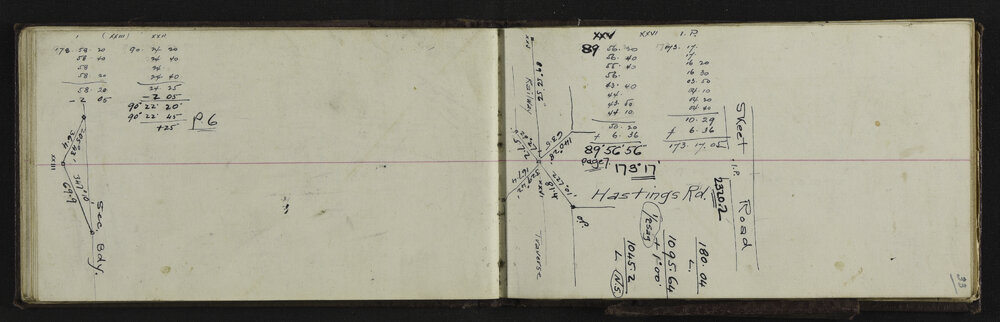 1 (XXIII) XXII
178. 58. 20 90. 24 20
58. 40 24 40
58 24
58 20 24 40
58. 20 24. 25
- 2 05 - 2 05
90° 22' 20"
90° 22' 45"
+25
P.6
205° 43'
364
XXIII
347 10
699
Sec. Bdy.
XXV XXVI I.P.
89 56. 20 173. 17.
56. 40 17
55. 40 16 20
56. 16 30
43. 40 03. 50
44. 04. 10
43. 50 04. 20
44. 10 04. 40
50. 20 10. 29
+ 6. 36 + 6. 36
89° 56' 56" 173. 17. 05
page 7.
173° 17'
89° 56' 56"
Railway
635
140° 28'
XXVI
Traverse
I.P.
Hastings Rd.
Skeet Road
I.P.
2320.2
180.04
L.
1095.64
+ 1.00
1045.2
L
N5
33